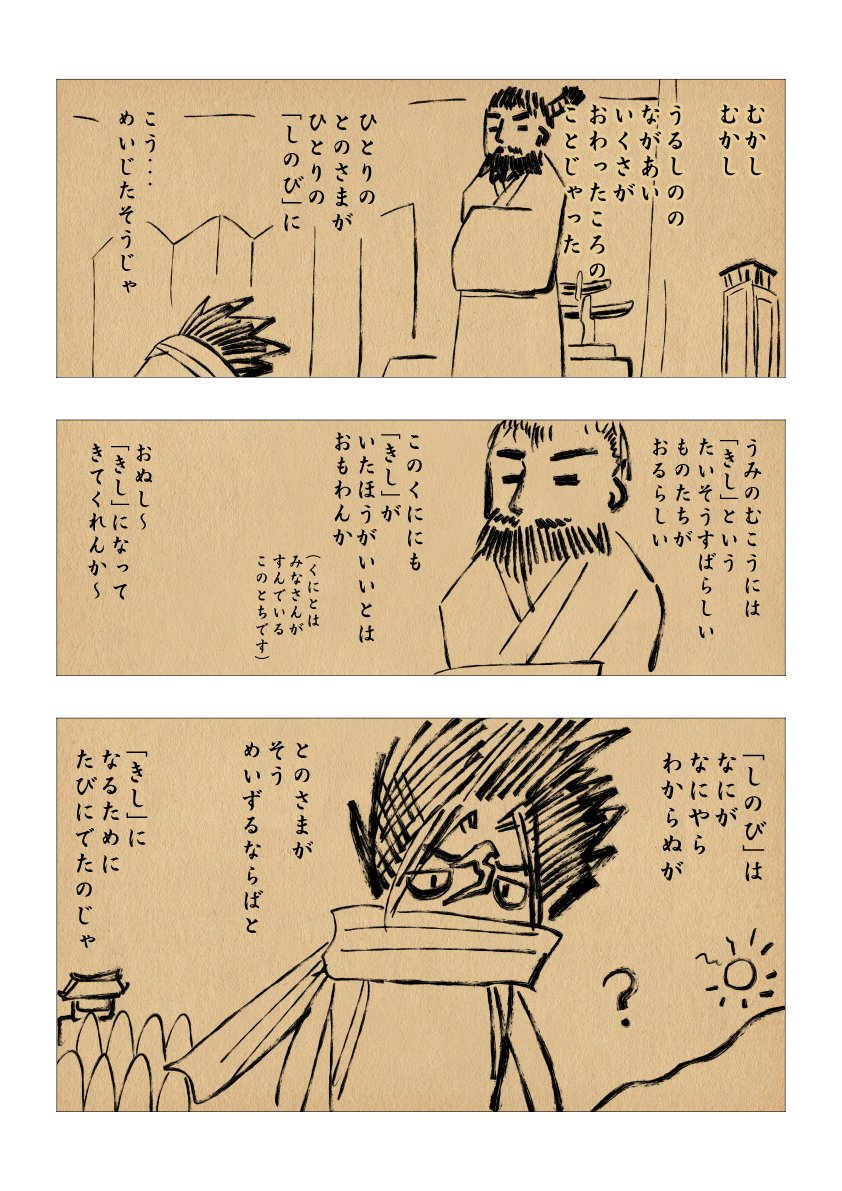 むかし
むかし
うるしのの
ながあい
いくさが
おわったころの
ことじゃった
ひとりの
とのさまが
ひとりの
「しのび」に
こう・・・
めいじたそうじゃ
うみのむこうには
「きし」という
たいそうすばらしい
ものたちが
おるらしい
このくににも
「きし」が
いたほうがいいとは
おもわんか
(くにとは
みなさんが
すんでいる
このとちです)
おぬし〜
「きし」になって
きてくれんか〜
「しのび」は
なにが
なにやら
わからぬが
?
とのさまが
そう
めいずるならばと
「きし」に
なるために
たびにでたのじゃ